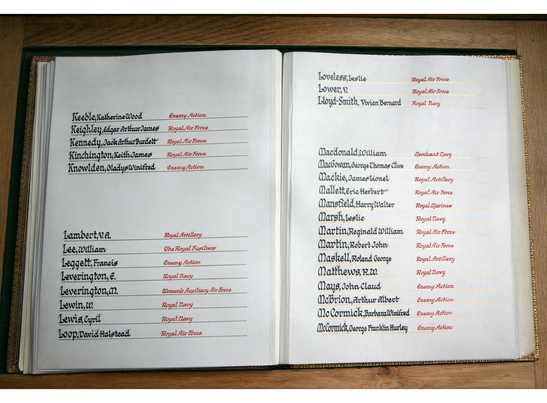 Keeble, Katherine Wood Enemy Action
Keighley, Edgar Arthur James Royal Air Force
Kennedy, Jack Arthur Burdett Royal Air Force
Kinchington, Keith James Royal Air Force
Knowlden, Gladys Winifred Enemy Action
Lambert, V.A. Royal Artillery
Lee, William The Royal Fusiliers
Leggett, Francis Enemy Action
Leverington, E. Royal Navy
Leverington, M. Women's Auxiliary Air Force
Lewin, W. Royal Navy
Lewis, Cyril Royal Navy
Loop, David Halstead Royal Air Force
Loveless, Leslie Royal Air Force
Lower, V. Royal Air Force
Lloyd-Smith, Vivian Bernard Royal Navy
Macdonald, William Merchant Navy
MacGowan, George Thomas Clive Enemy Action
Mackie, James Lionel Royal Artillery
Mallett, Eric Herbert Royal Air Force
Mansfield, Harry Walter Royal Marines
Marsh, Leslie Royal Navy
Martin, Reginald William Royal Air Force
Martin, Robert John Royal Air Force
Maskell, Roland George Royal Artillery
Matthews, R.W. Royal Navy
Mays, John Claud Enemy Action
McBrion, Arthur Albert Enemy Action
McCormick, Barbara Winifred Enemy Action
McCormick, George Franklin Hurley Enemy Action